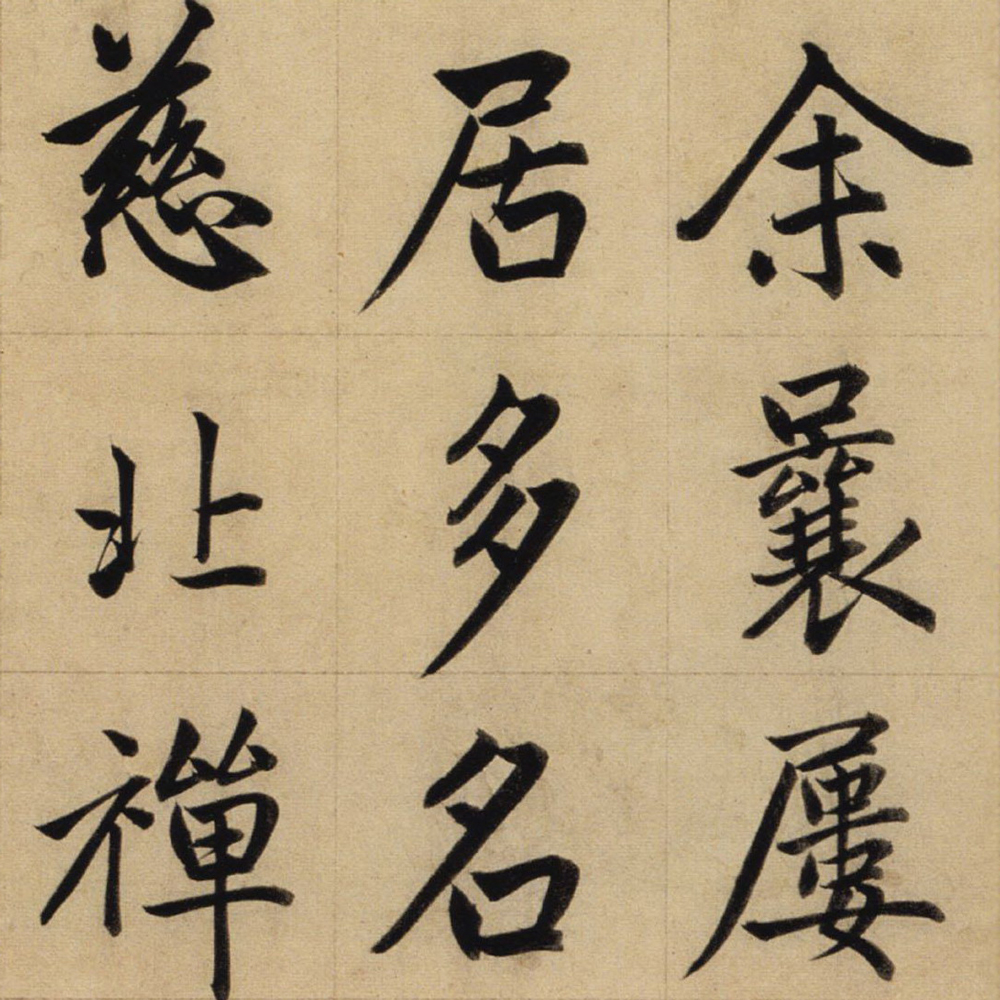 余曩屢
居多名
慈北禪